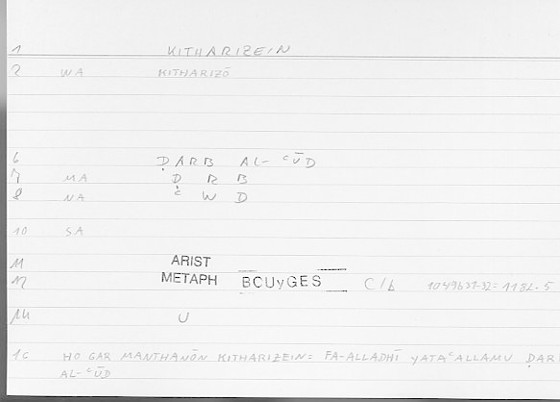 1 KITHARIZEIN
2 WA KITHARIZŌ
6 ḌARB AL-ʿŪD
7 MA Ḍ R B
8 NA ʿ W D
10 SA
11 ARIST
12 METAPH BOUYGES C/b 1049b31-32= 1182.5
14 U
16 HO GAR MANTHANŌN KITHARIZEIN= FA-ALLADHĪ YATAʿALLAMU ḌAR
AL-ʿŪD